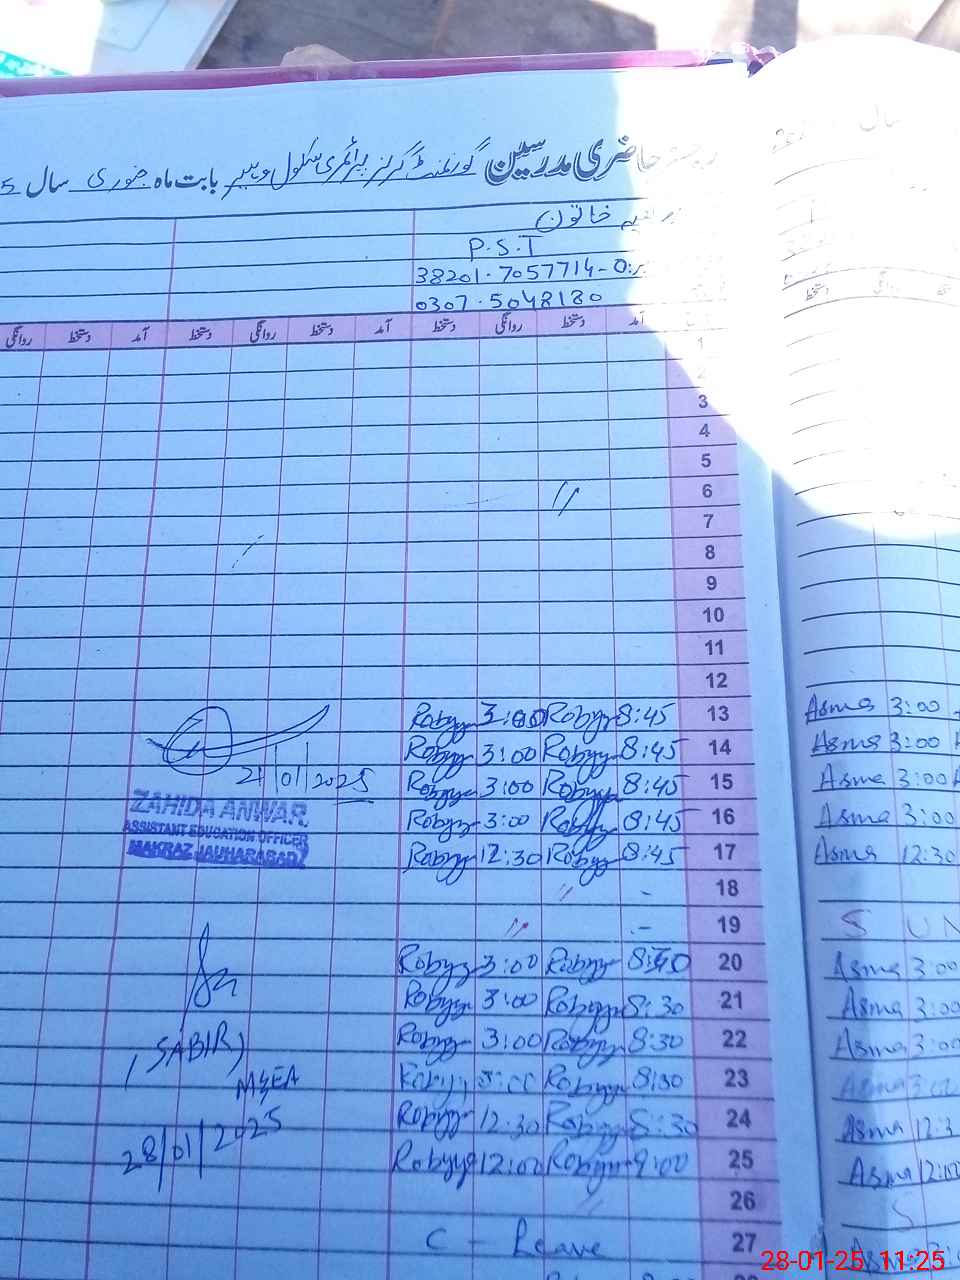 حاضری مدرسین گورنمنٹ گرلز پرائمری سکول بابت ماہ جنوری سال 5
خاتون
P.S.T
38201-7057714-0
0307-5048180
آمد دستخط روانگی دستخط آمد دستخط روانگی دستخط آمد دستخط روانگی
1
2
3
4
5
6
7
8
9
10
11
12
13 8:45 Robyy 3:00 Robyy
Asma 3:00
14 8:45 Robyy 3:00 Robyy
Asma 3:00
15 8:45 Robyy 3:00 Robyy
Asma 3:00
16 8:45 Robyy 3:00 Robyy
Asma 3:00
17 8:45 Robyy 12:30 Robyy
Asma 12:30
18
19
S U N
20 8:40 Robyy 3:00 Robyy
Asma 3:00
21 8:30 Robyy 3:00 Robyy
Asma 3:00
22 8:30 Robyy 3:00 Robyy
Asma 3:00
23 8:30 Robyy 3:00 Robyy
Asma 3:00
24 8:30 Robyy 12:30 Robyy
Asma 12:3
25 9:00 Robyy 12:00 Robyy
Asma 12:00
26
S
27 C - Leave
Asma
21/01/2025
ZAHIDA ANWAR
ASSISTANT EDUCATION OFFICER
MAKRAZ JAUHARABAD
(SABIR)
M&EA
28/01/2025
28-01-25, 11:25